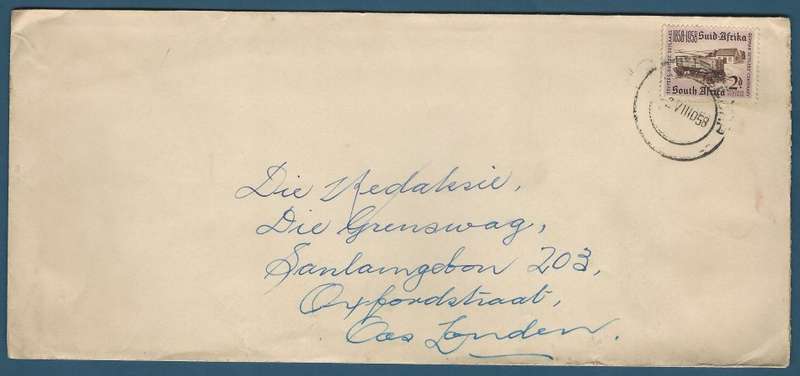 1858-1958 Suid-Afrika
2d
South Africa
VIII 58
Die Redaksie,
Die Grenswag,
Sanlamgebou 203,
Oxfordstraat,
Oos Londen.